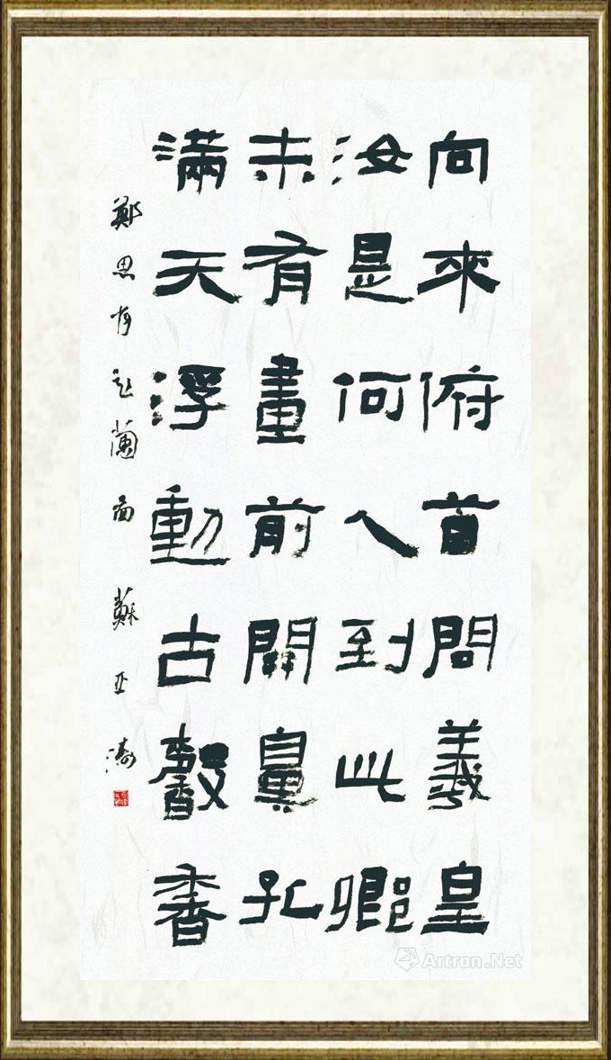 向來俯首問羲皇
汝是何人到此鄉
未有畫前開鼻孔
滿天浮動古馨香
鄭思肖題蘭画 蘇亚濤
Artron.Net